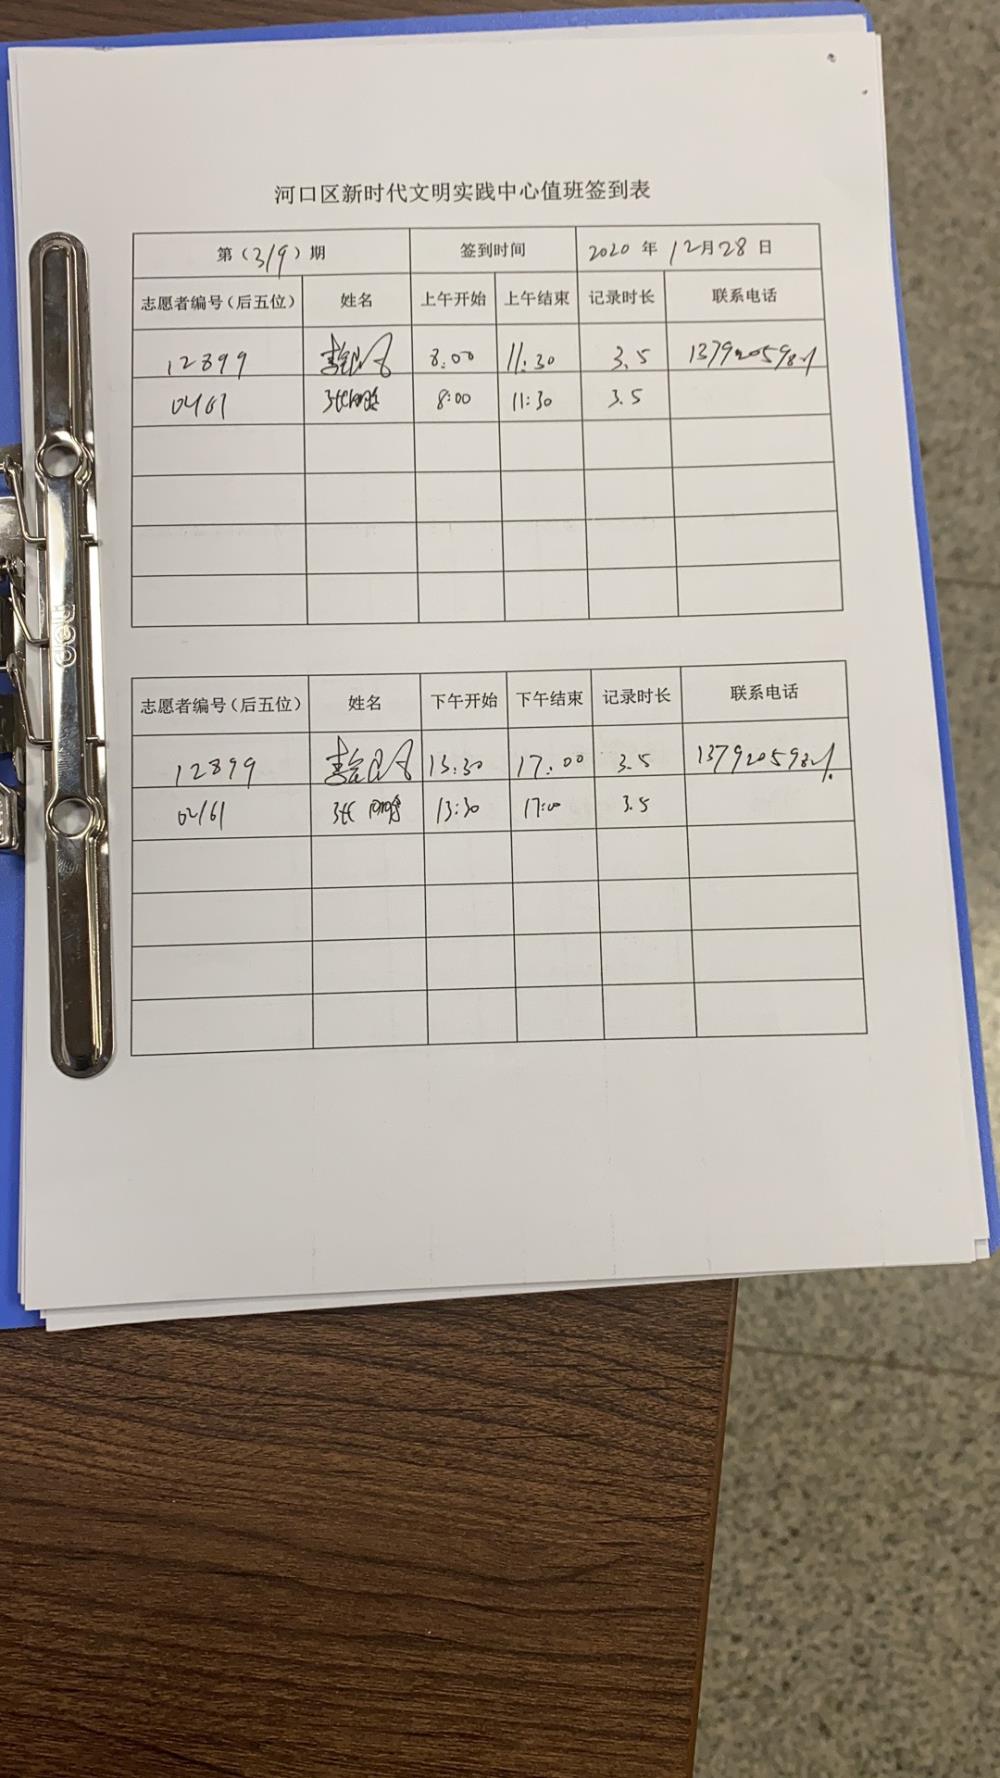 河口区新时代文明实践中心值班签到表
第（319）期 签到时间 2020 年 12月28日
志愿者编号（后五位） 姓名 上午开始 上午结束 记录时长 联系电话
12899 8:00 11:30 3.5
8:00 11:30 3.5
志愿者编号（后五位） 姓名 下午开始 下午结束 记录时长 联系电话
12899 13:30 17:00 3.5
13:30 17:00 3.5
deli